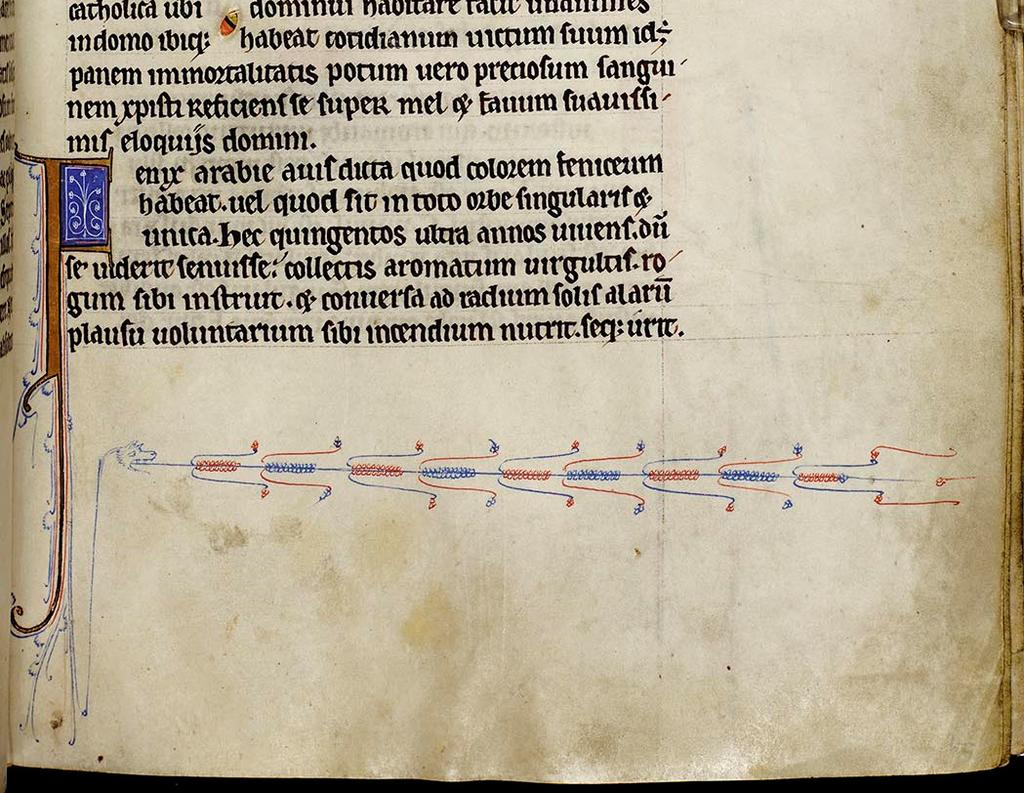 catholica ubi dominus habitare facit unanimes
in domo ibiq; habeat cotidianum uictum suum id;
panem immortalitatis potum uero preciosum sangui
nem xpisti Reficiens se super mel & fauum suauissi
mis eloquijs domini.
Fenix arabie auis dicta quod colorem feniceum
habeat. uel quod sit in toto orbe singularis &
unica. hec quingentos ultra annos uiuens. dū
se uiderit senuisse: collectis aromatum uirgultis. ro
gum sibi instruit. & conuersa ad radium solis alarū
plausu uoluntarium sibi incendium nutrit. seq; urit.